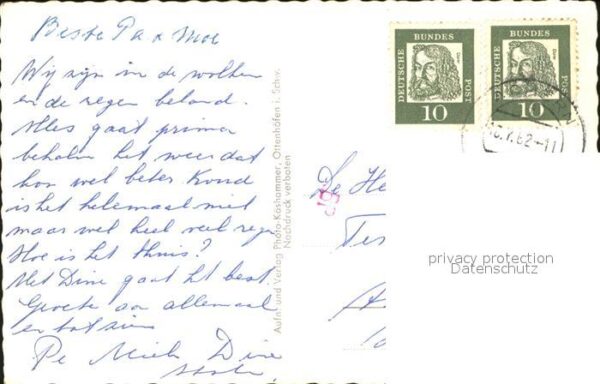 Beste Pa x Moe
Wij zijn in de wolken
en de regen beland.
Alles gaat prima
behalve het weer dat
kon wel beter. Koud
is het helemaal niet
maar wel heel veel regen
Hoe is het thuis?
Met Dine gaat het best.
Groete aan allemaal
en tot ziens
Pe Miek Dine
Aufn. und Verlag Photo-Koshammer, Ottenhöfen i. Schw.
Nachdruck verboten
DEUTSCHE BUNDES POST
10
DEUTSCHE BUNDES POST
10
.7.62-11
De He
Ter
privacy protection
Datenschutz